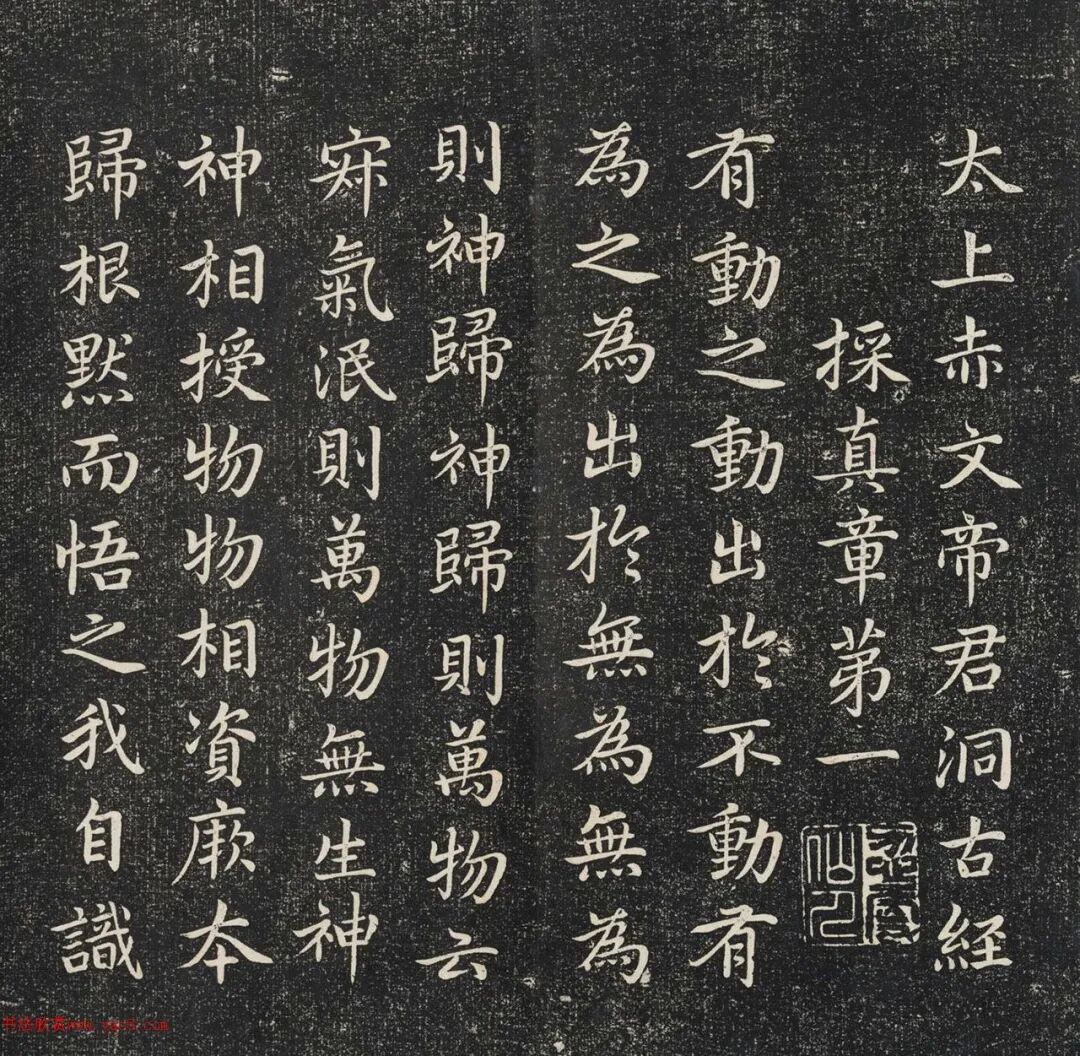 太上赤文帝君洞古經
採真章苐一
有動之動出於不動有
為之為出於無為無為
則神歸神歸則萬物云
寂氣泯則萬物無生神
神相授物物相資厥本
歸根默而悟之我自識
书法欣赏www.yac8.com